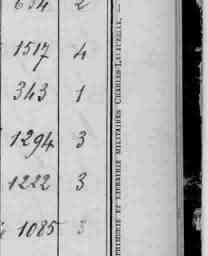 634 2
1517 4
343 1
1294 3
1222 3
1085 3
PRIMERIE ET LIBRAIRIE MILITAIRES CHARLES-LAVAUZELLE.